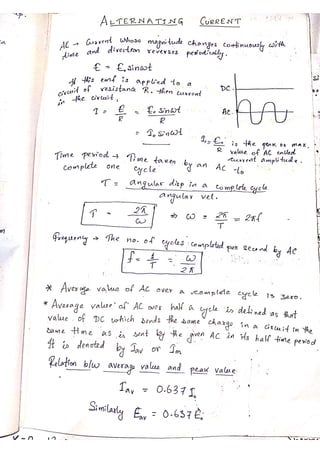 ALTERNATING CURRENT
AC → Current whose magnitude changes continuously with
time and direction reverses periodically.
E = E₀ sinωt
If this emf is applied to a
circuit of resistance R, then current
in the circuit,
DC-
AC
I = E/R = E₀ sinωt/R
= I₀ sinωt
I₀ = E₀/R is the peak or max.
value of AC called
current amplitude.
Time period → Time taken by an AC to
complete one cycle
T = angular disp in a complete cycle / angular vel.
T = 2π/ω ⇒ ω = 2π/T = 2πf
Frequency → The no. of cycles completed per second by AC
f = 1/T = ω/2π
* Average value of AC over a complete cycle is zero.
* Average value of AC over half a cycle is defined as that
value of DC which sends the same charge in a circuit in the
same time as is sent by the given AC in its half time period
It is denoted by Iav or Im
Relation b/w average value and peak value
Iav = 0.637 I₀
Similarly Eav = 0.637 E₀